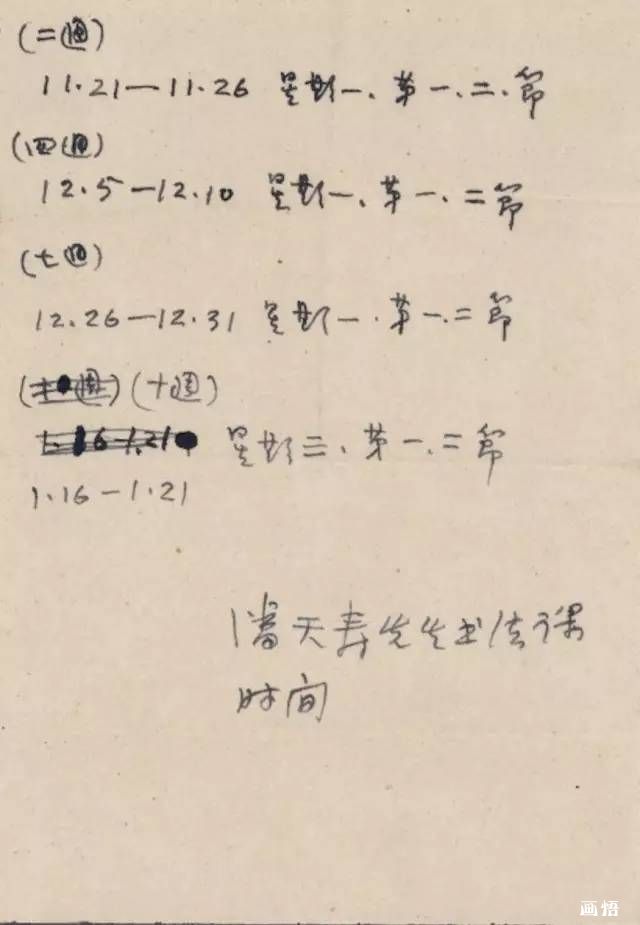 (二週)
11.21—11.26 星期一、第一、二、節
(四週)
12.5—12.10 星期一、第一、二節
(七週)
12.26—12.31 星期一、第一、二節
(十週)
1.16-1.21 星期三、第一、二節
1.16-1.21
潘天寿先生书法课
时间
画悟